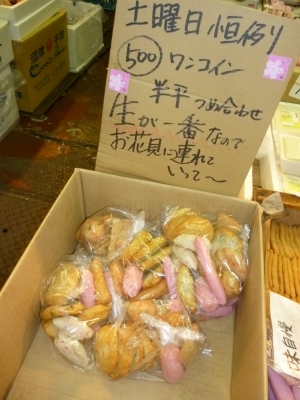 土曜日恒例
500 ワンコイン
半平つめ合わせ
生が一番なので
お花見に連れて
いって〜
味自慢